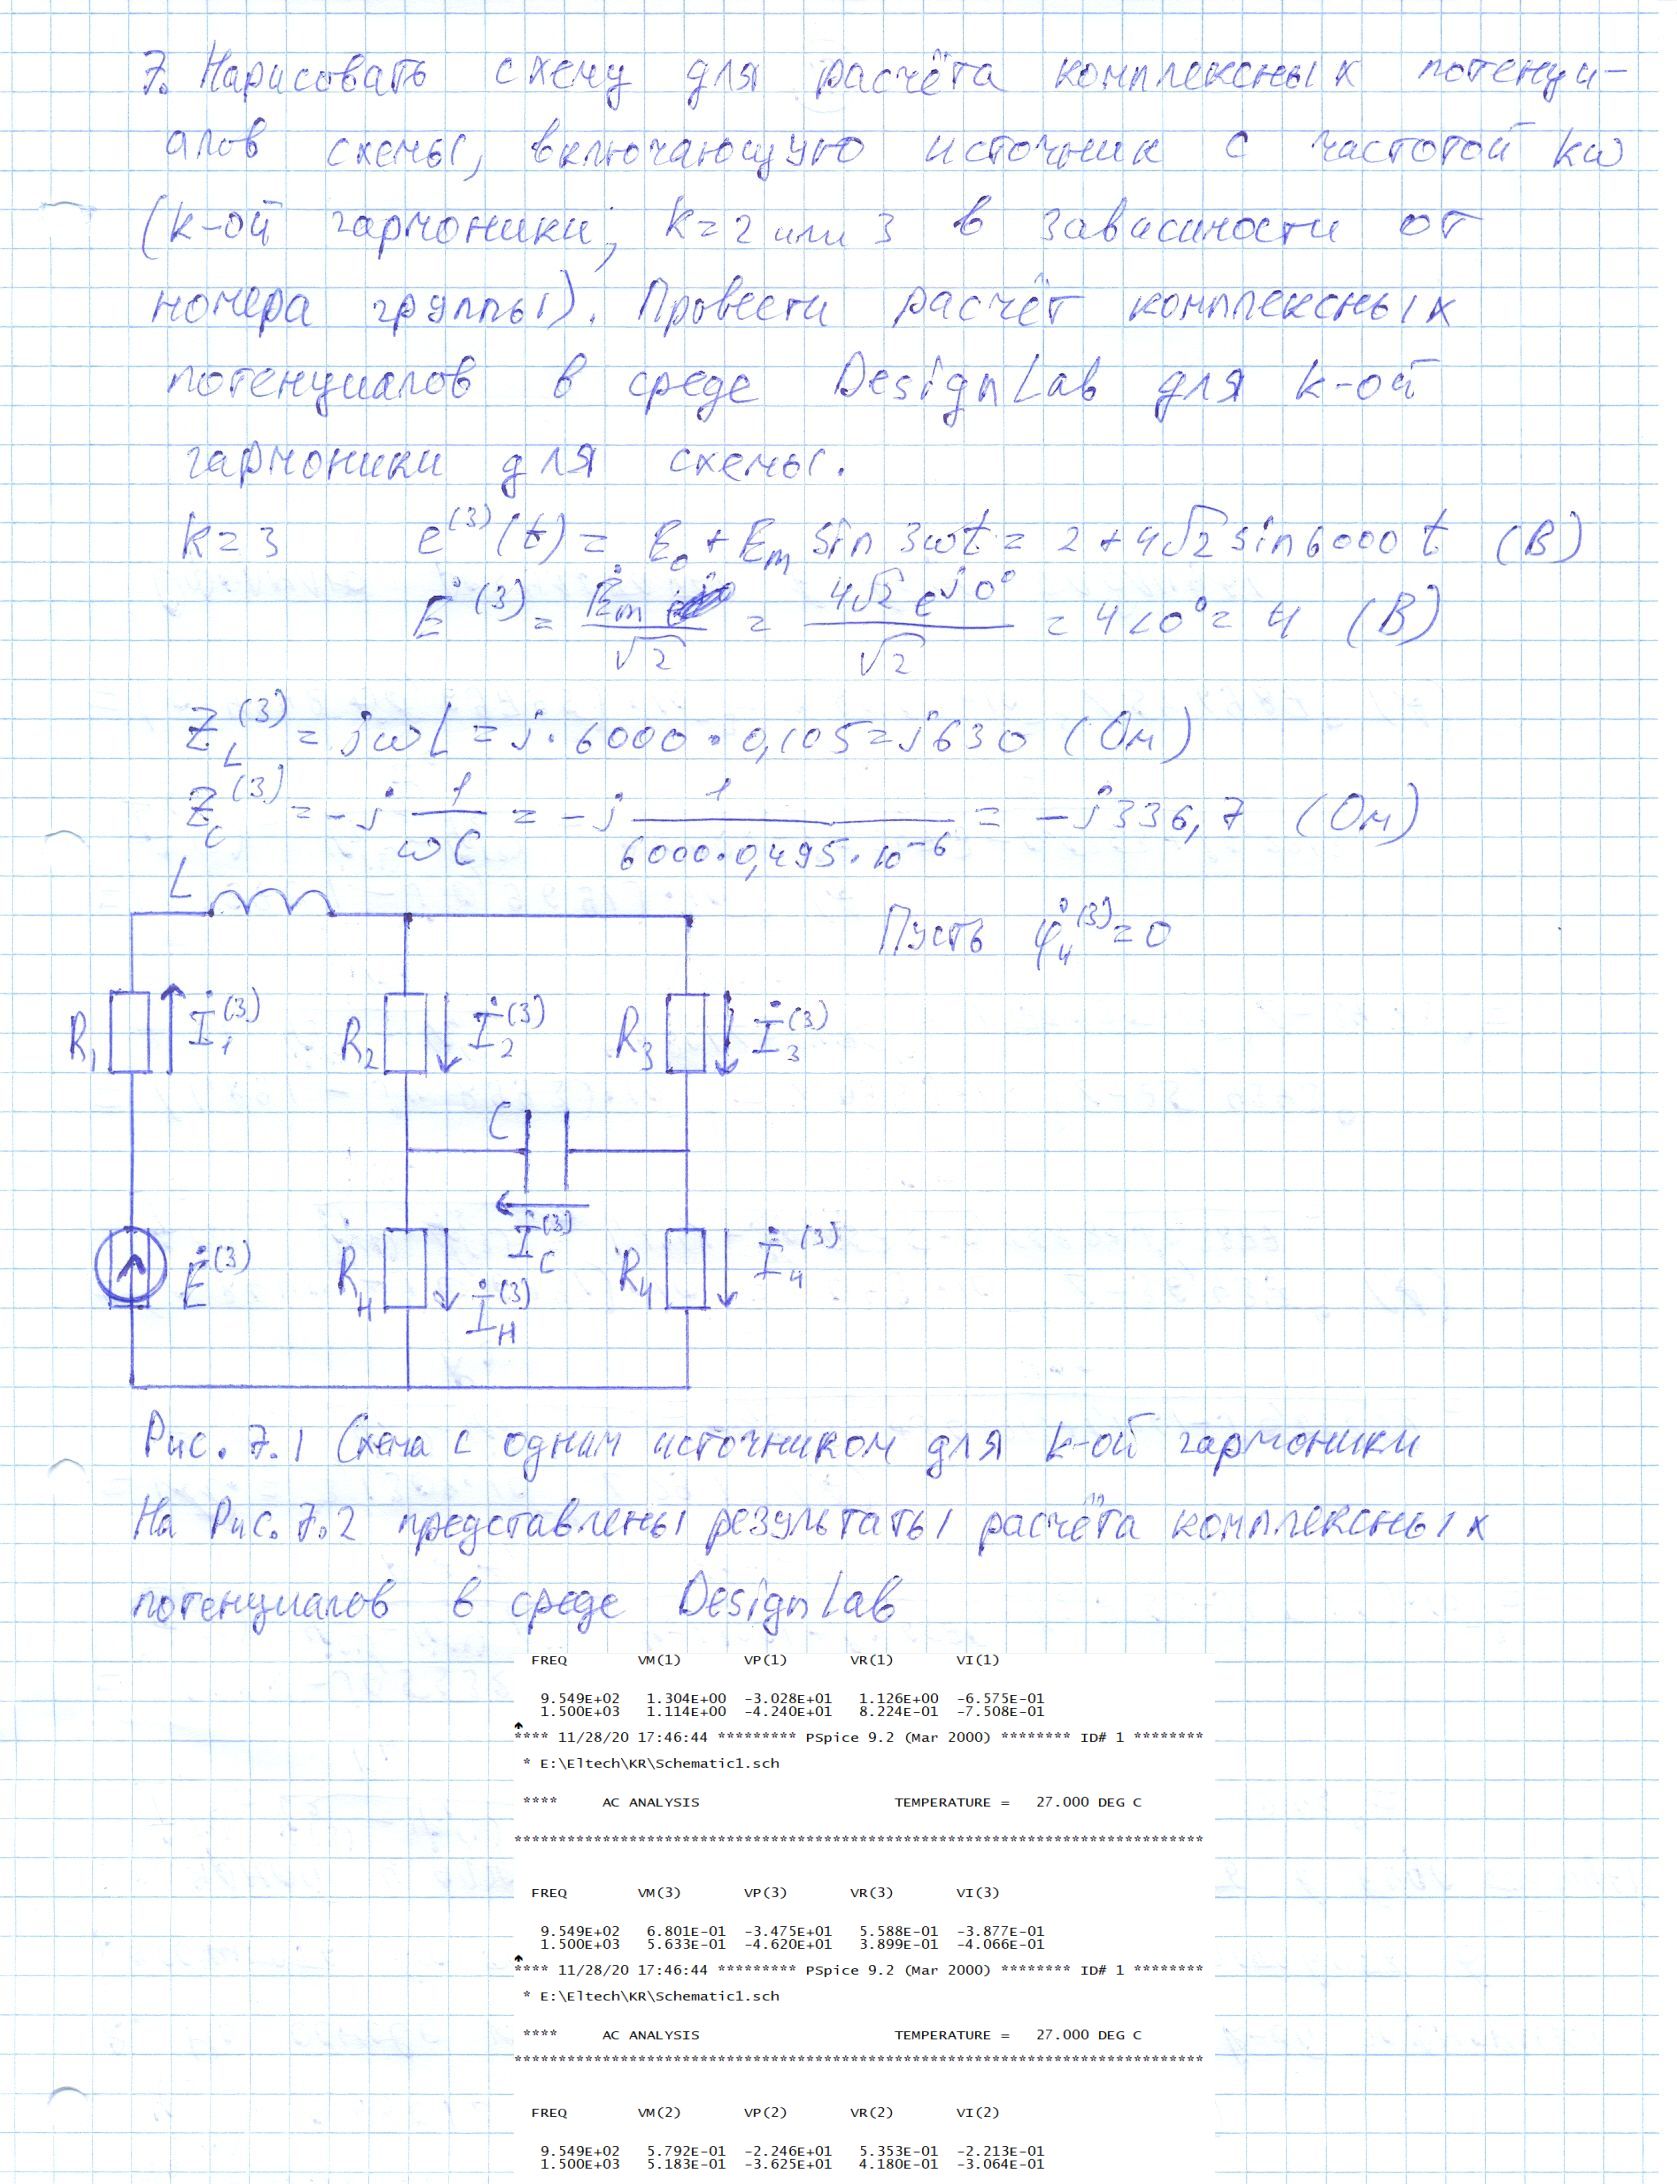 7. Нарисовать схему для расчёта комплексных потенци-
алов схемы, включающую источник с частотой kω
(k-ой гармоники; k=2 или 3 в зависимости от
номера группы). Провести расчёт комплексных
потенциалов в среде DesignLab для k-ой
гармоники для схемы.
k=3 e⁽³⁾(t) = E₀ + Eₘ sin 3ωt = 2 + 4√2 sin 6000 t (В)
Ė⁽³⁾ = Ėₘ / √2 = 4√2 e^(j0°) / √2 = 4<0° = 4 (В)
Z_L⁽³⁾ = jωL = j · 6000 · 0,105 = j630 (Ом)
Z_C⁽³⁾ = -j 1/(ωC) = -j 1/(6000·0,495·10⁻⁶) = -j336,7 (Ом)
L
Пусть φ̇₄⁽³⁾ = 0
R₁ İ₁⁽³⁾ R₂ İ₂⁽³⁾ R₃ İ₃⁽³⁾
C
İ_C⁽³⁾
Ė⁽³⁾ R_H İ_H⁽³⁾ R₄ İ₄⁽³⁾
Рис. 7.1 Схема с одним источником для k-ой гармоники
На Рис. 7.2 представлены результаты расчёта комплексных
потенциалов в среде DesignLab
FREQ VM(1) VP(1) VR(1) VI(1)
9.549E+02 1.304E+00 -3.028E+01 1.126E+00 -6.575E-01
1.500E+03 1.114E+00 -4.240E+01 8.224E-01 -7.508E-01
**** 11/28/20 17:46:44 ********* PSpice 9.2 (Mar 2000) ******** ID# 1 ********
* E:\Eltech\KR\Schematic1.sch
**** AC ANALYSIS TEMPERATURE = 27.000 DEG C
******************************************************************************
FREQ VM(3) VP(3) VR(3) VI(3)
9.549E+02 6.801E-01 -3.475E+01 5.588E-01 -3.877E-01
1.500E+03 5.633E-01 -4.620E+01 3.899E-01 -4.066E-01
**** 11/28/20 17:46:44 ********* PSpice 9.2 (Mar 2000) ******** ID# 1 ********
* E:\Eltech\KR\Schematic1.sch
**** AC ANALYSIS TEMPERATURE = 27.000 DEG C
******************************************************************************
FREQ VM(2) VP(2) VR(2) VI(2)
9.549E+02 5.792E-01 -2.246E+01 5.353E-01 -2.213E-01
1.500E+03 5.183E-01 -3.625E+01 4.180E-01 -3.064E-01